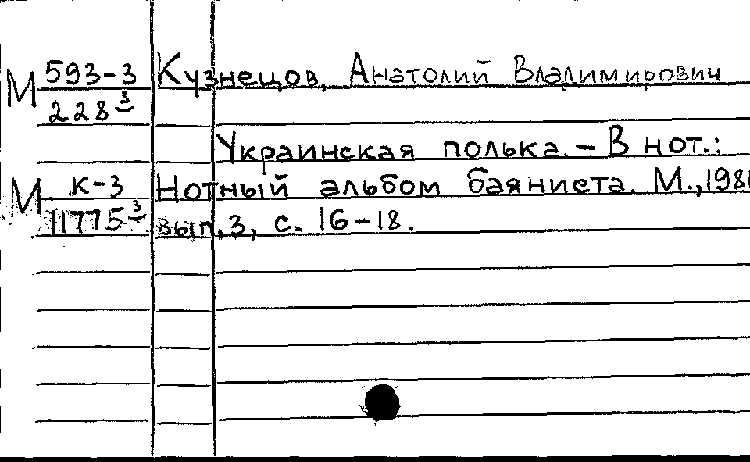 М 593-3 Кузнецов, Анатолий Владимирович
228 3
Украинская полька. – В нот.:
М К-3 Нотный альбом баяниста. М., 198
11775 3 вып. 3, с. 16-18.